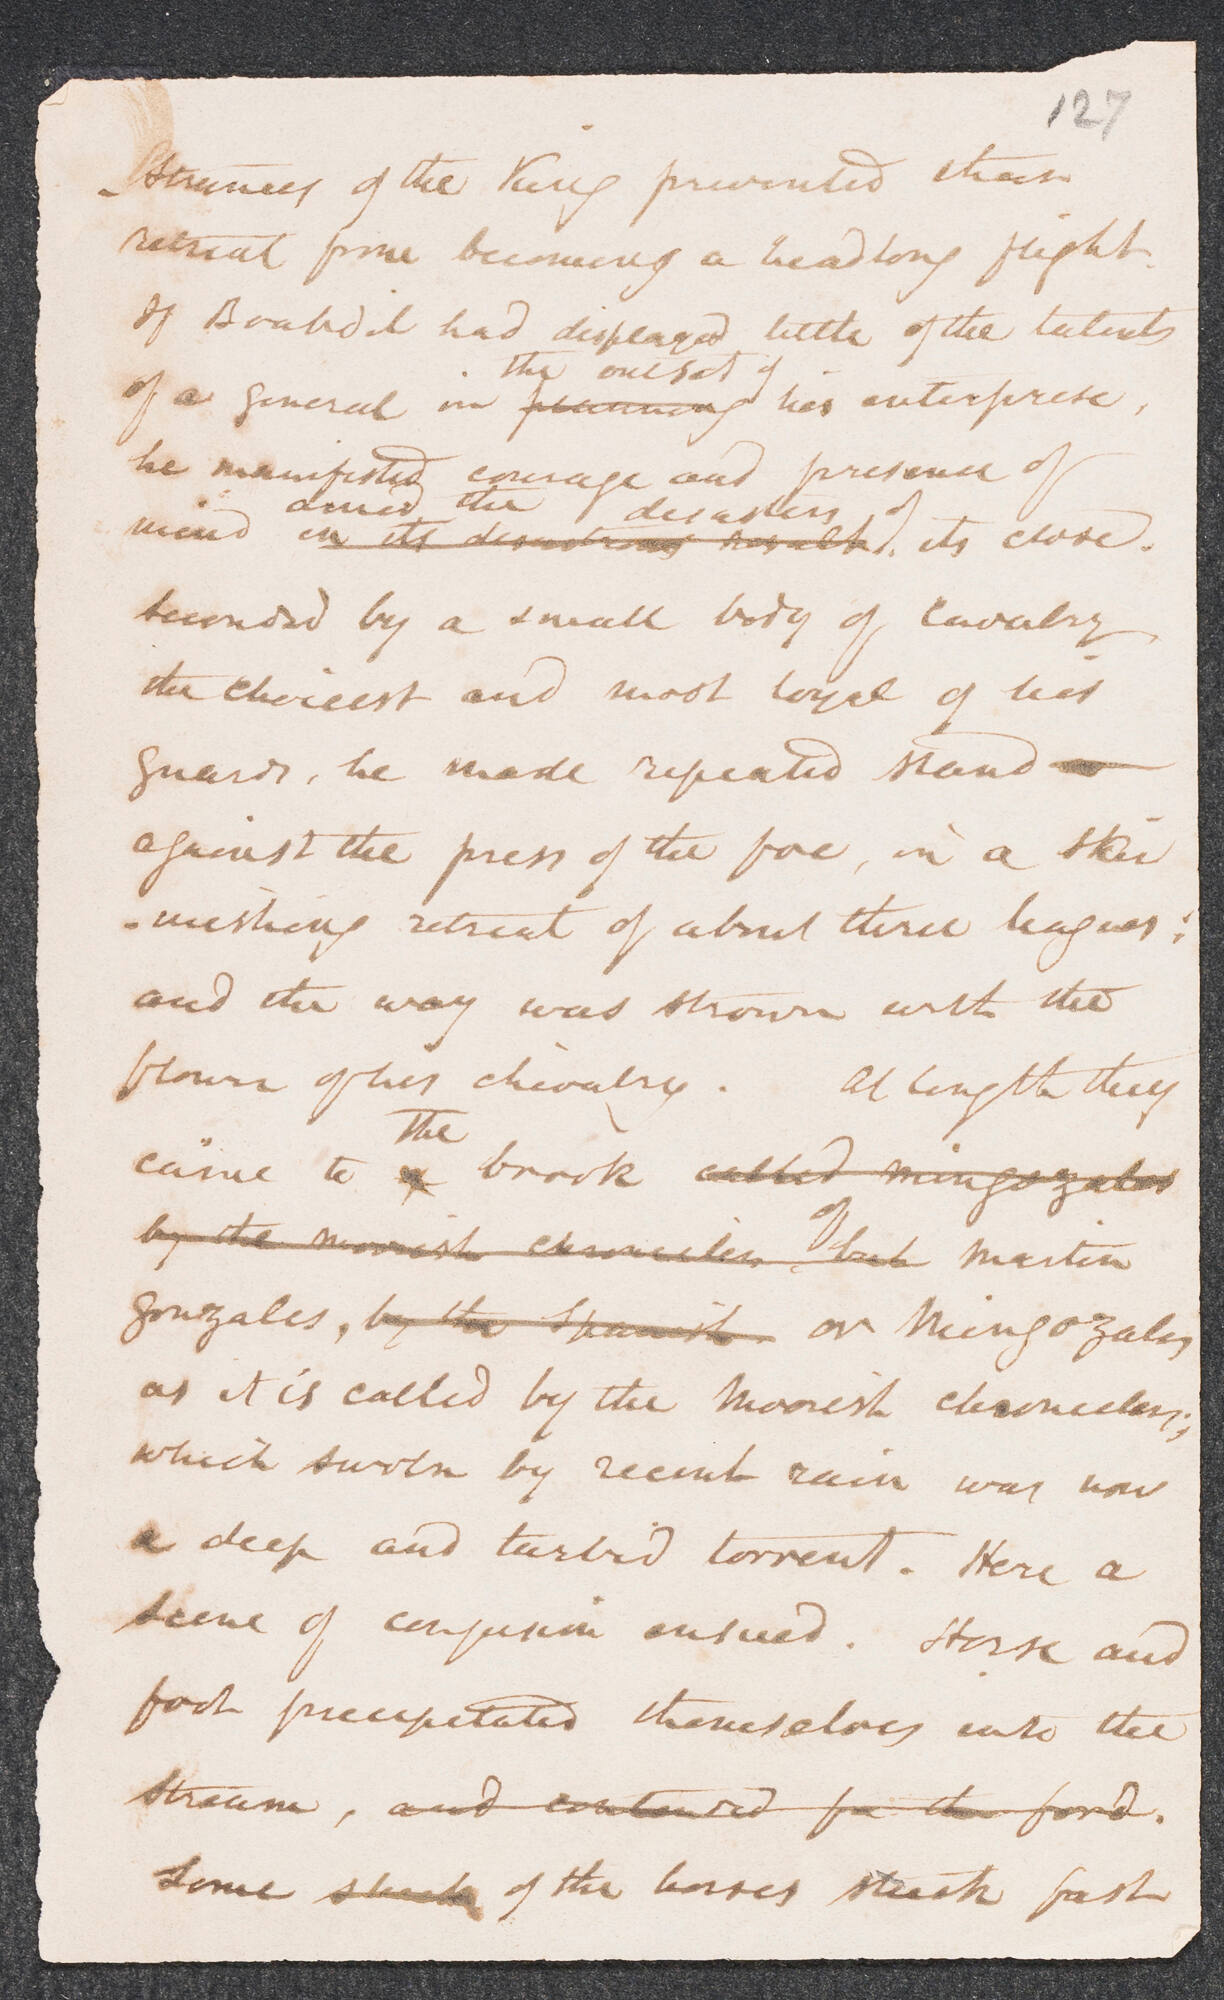 127
-strances of the King prevented their
retreat from becoming a headlong flight.
If Boabdil had displayed little of the talents
the outset of
of a general in planning his enterprise,
he manifested courage and presence of
amid the disasters of
mind in its disastrous result. its close.
Seconded by a small body of Cavalry
the choicest and most loyal of his
guards, he made repeated stand
against the press of the foe, in a skir
-mishing retreat of about three leagues;
and the way was strown with the
flower of his chivalry. At length they
the
came to a brook called Mingozales
of
by the moorish chroniclers but Martin
Gonzales, by the Spanish. or Mingozales
as it is called by the Moorish chroniclers;
which swoln by recent rain was now
a deep and turbid torrent. Here a
scene of confusion ensued. Horse and
foot precipitated themselves into the
stream, and contended for the ford.
Some stuck of the horses stuck fast